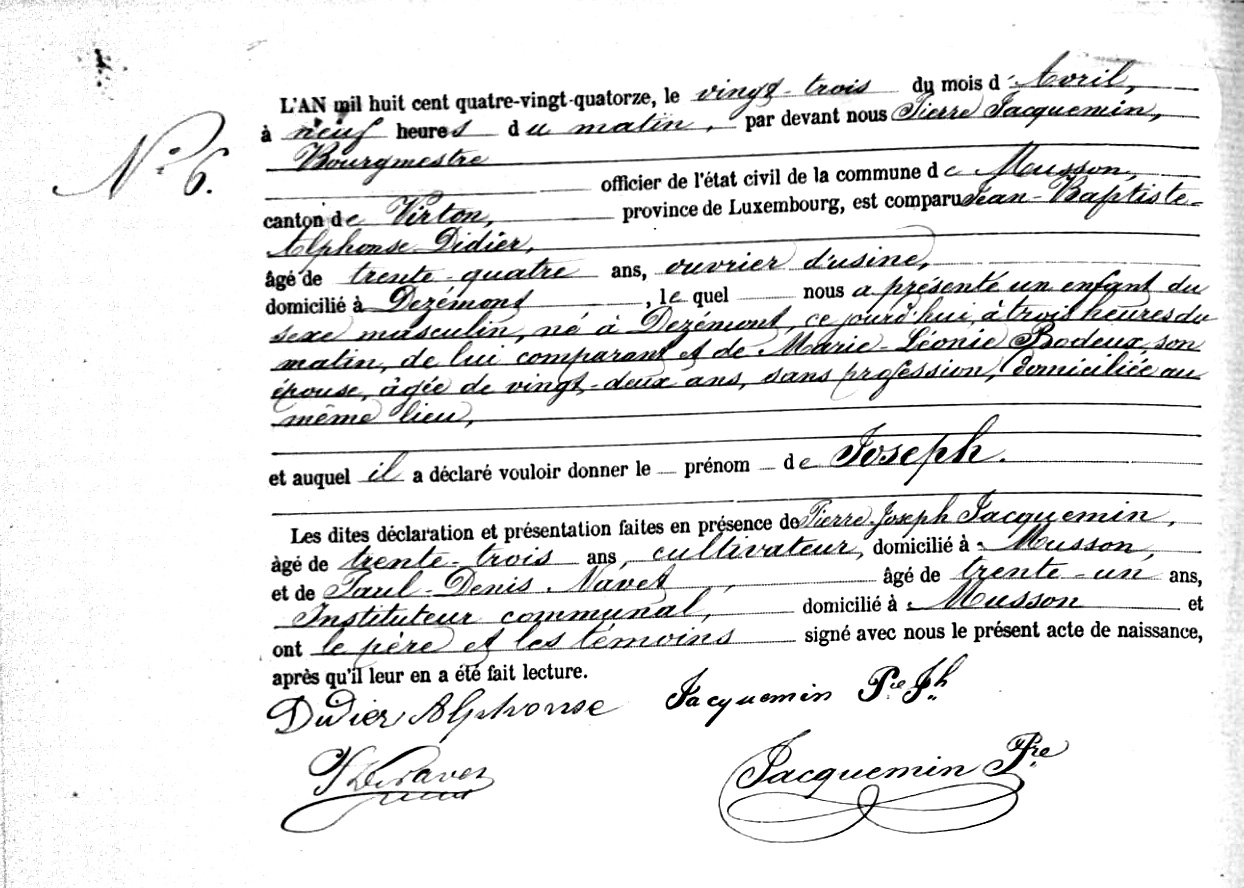 N.º 6.
L'AN mil huit cent quatre-vingt-quatorze, le vingt-trois du mois d'Avril,
à neuf heures du matin, par devant nous Pierre Jacquemin,
Bourgmestre
officier de l'état civil de la commune de Musson,
canton de Virton, province de Luxembourg, est comparu Jean-Baptiste-
Alphonse Didier,
âgé de trente-quatre ans, ouvrier d'usine,
domicilié à Dezémont, le quel nous a présenté un enfant du
sexe masculin, né à Dezémont, ce jourd'hui, à trois heures du
matin, de lui comparant et de Marie-Léonie Bodeux, son
épouse, âgée de vingt-deux ans, sans profession, domiciliée au
même lieu,
et auquel il a déclaré vouloir donner le prénom de Joseph.
Les dites déclaration et présentation faites en présence de Pierre-Joseph Jacquemin,
âgé de trente-trois ans, cultivateur, domicilié à Musson,
et de Paul-Denis Navet, âgé de trente-un ans,
Instituteur communal, domicilié à Musson et
ont le père et les témoins signé avec nous le présent acte de naissance,
après qu'il leur en a été fait lecture.
Didier Alphonse Jacquemin Pre Jh
Jacquemin Pre